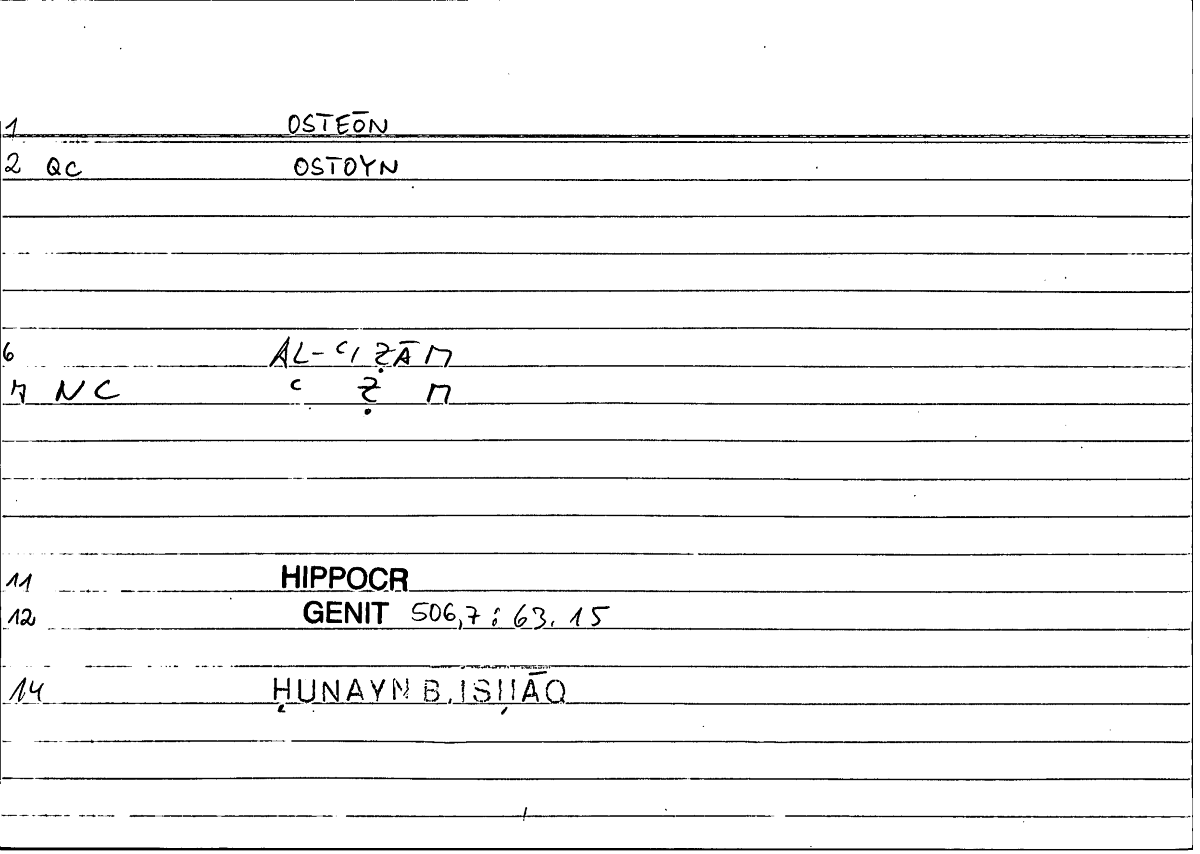 1 OSTEŌN
2 QC OSTOYN
6 AL-ʿIẒĀM
7 NC ʿ Ẓ M
11 HIPPOCR
12 GENIT 506,7 : 63.15
14 ḤUNAYN B. ISḤĀQ